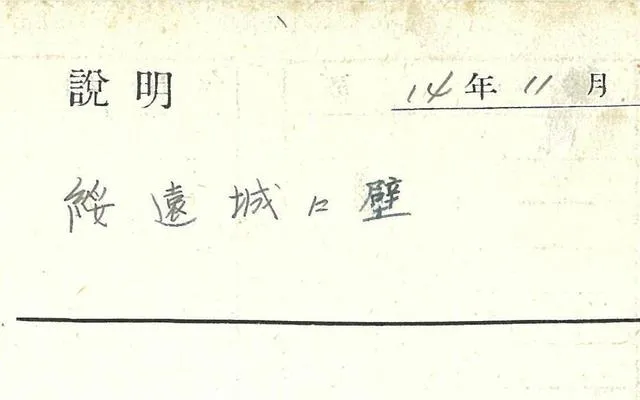 說明 14年11月
綏遠城口壁